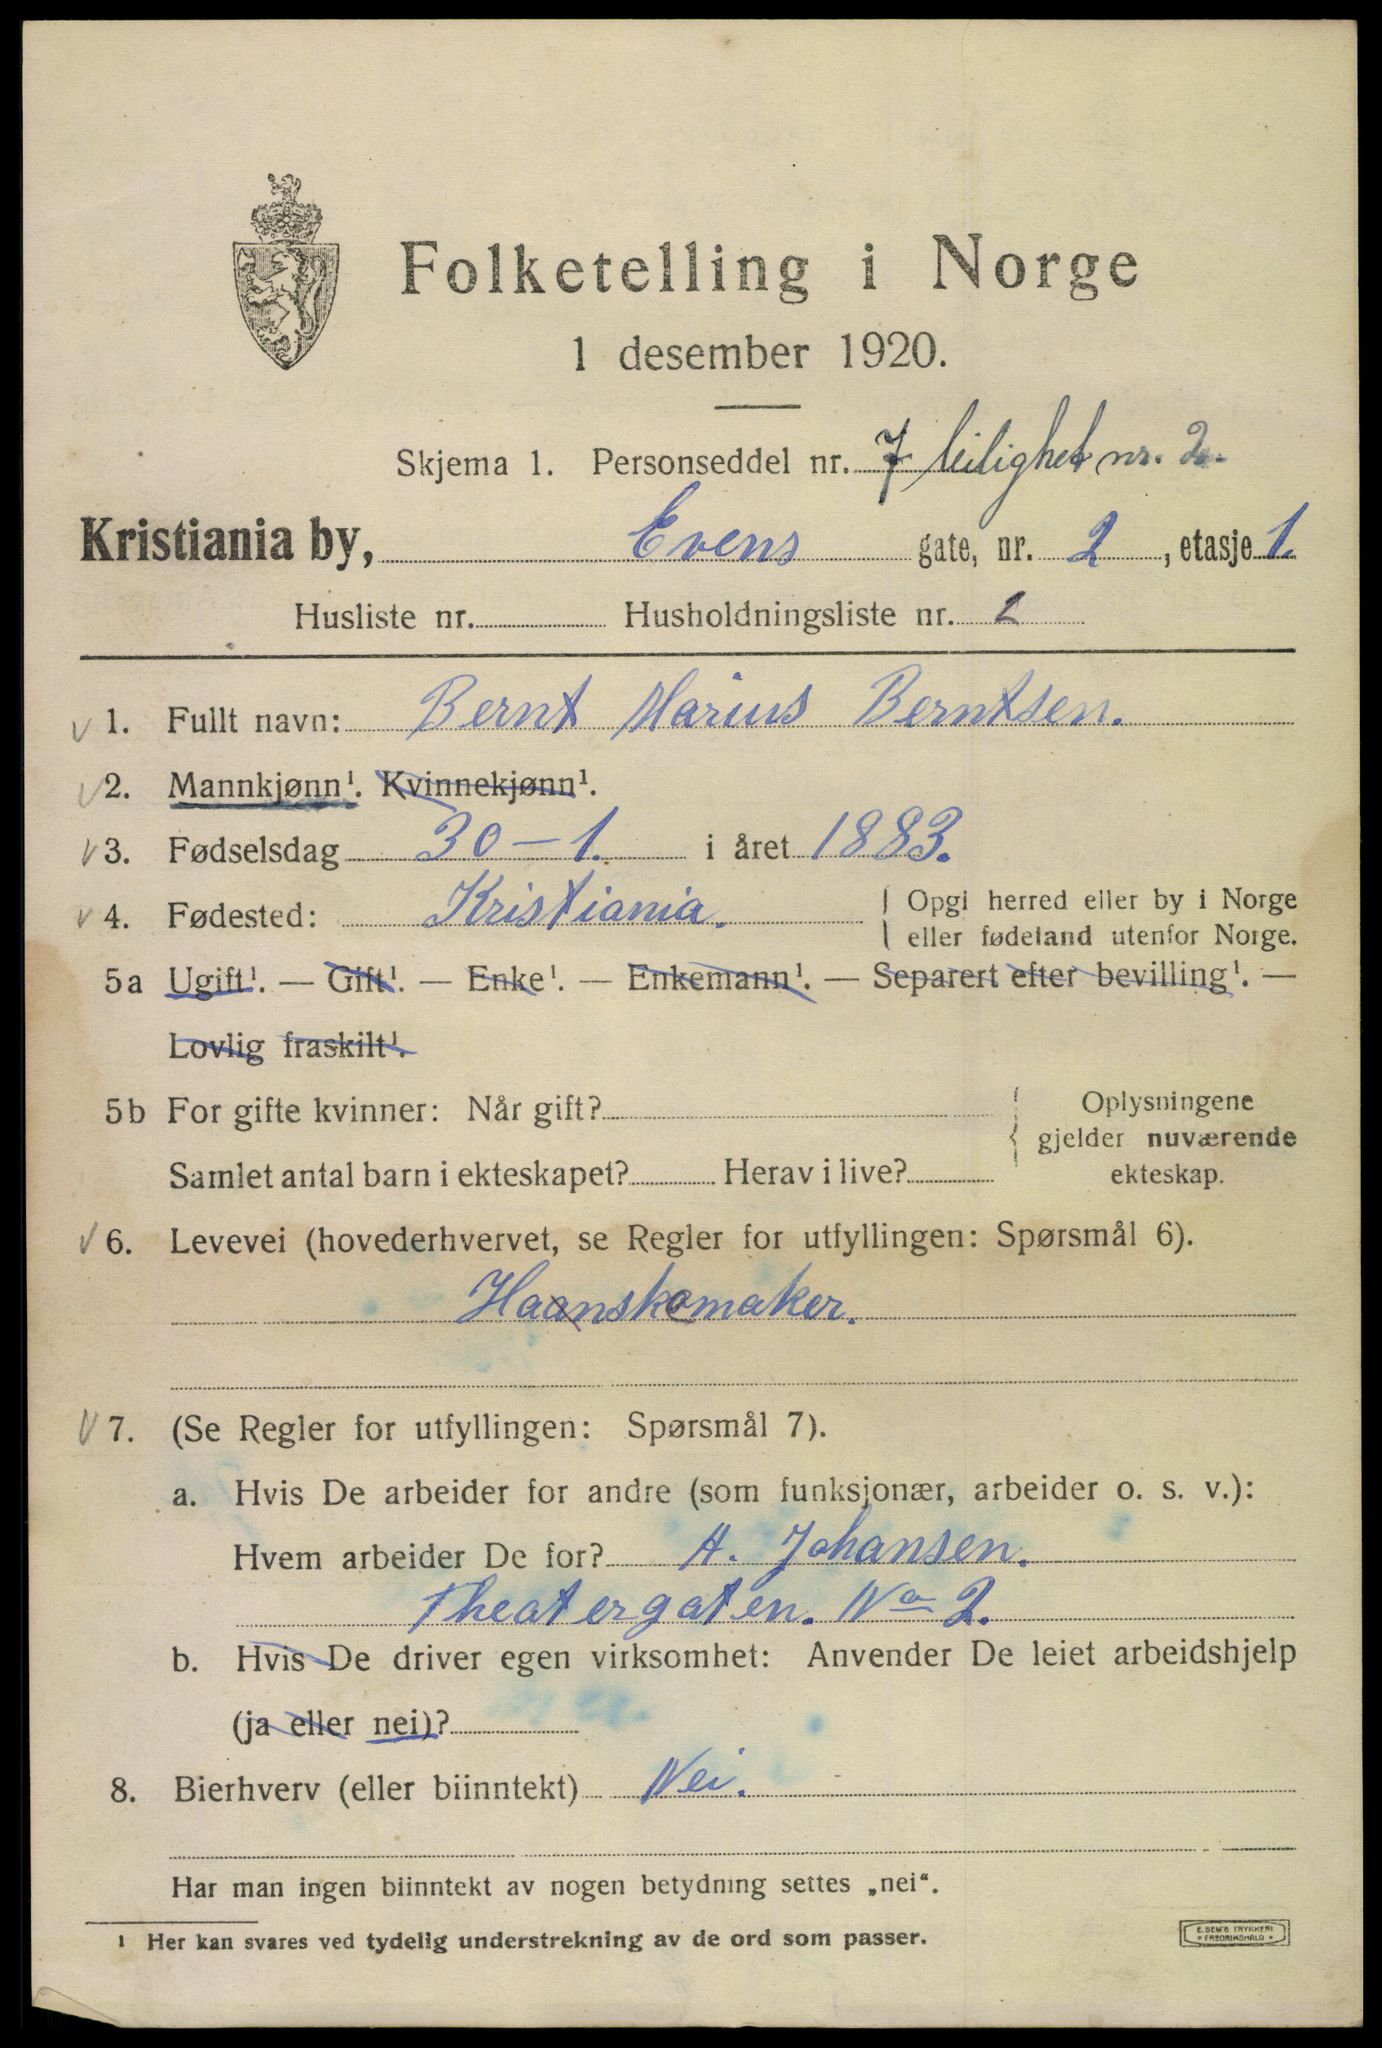 Folketelling i Norge
1 desember 1920.
Skjema 1. Personseddel nr. 7 leilighet nr. 2.
Kristiania by, Evens gate, nr. 2, etasje 1.
Husliste nr. Husholdningsliste nr. 2
1. Fullt navn: Bernt Marius Berntsen.
2. Mannkjønn¹. Kvinnekjønn¹.
3. Fødselsdag 30-1. i året 1883.
4. Fødested: Kristiania. Opgi herred eller by i Norge
eller fødeland utenfor Norge.
5a Ugift¹. — Gift¹. — Enke¹. — Enkemann¹. — Separert efter bevilling¹. —
Lovlig fraskilt¹.
5b For gifte kvinner: Når gift? Oplysningene
gjelder nuværende
Samlet antal barn i ekteskapet? Herav i live? ekteskap.
6. Levevei (hovederhvervet, se Regler for utfyllingen: Spørsmål 6).
Haanskomaker.
7. (Se Regler for utfyllingen: Spørsmål 7).
a. Hvis De arbeider for andre (som funksjonær, arbeider o. s. v.):
Hvem arbeider De for? A. Johansen.
Theatergaten. No 2.
b. Hvis De driver egen virksomhet: Anvender De leiet arbeidshjelp
(ja eller nei)?
8. Bierhverv (eller biinntekt) Nei.
Har man ingen biinntekt av nogen betydning settes „nei“.
¹ Her kan svares ved tydelig understrekning av de ord som passer.
E. SEM'S TRYKKERI
• FREDRIKSHALD •